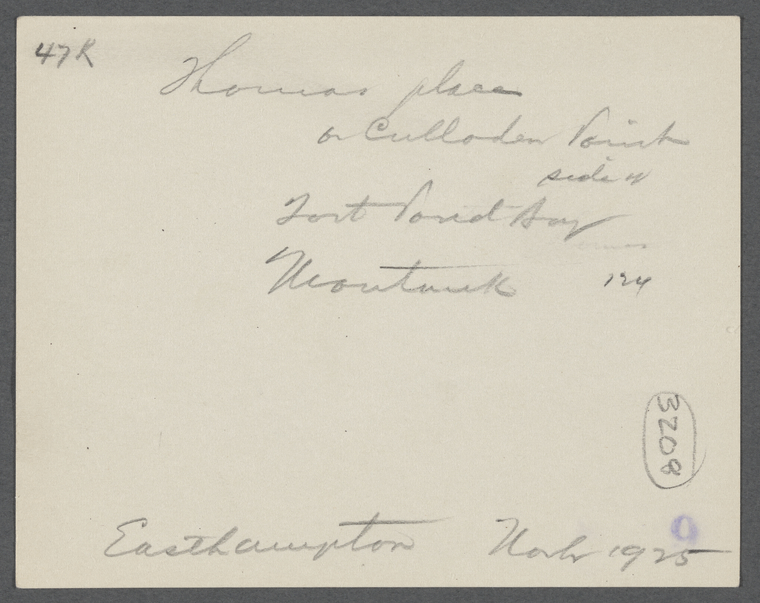 47R
Thomas place
on Culloden Point
side of
Fort Pond Bay
Montauk 124
3208
9
Easthampton 1925